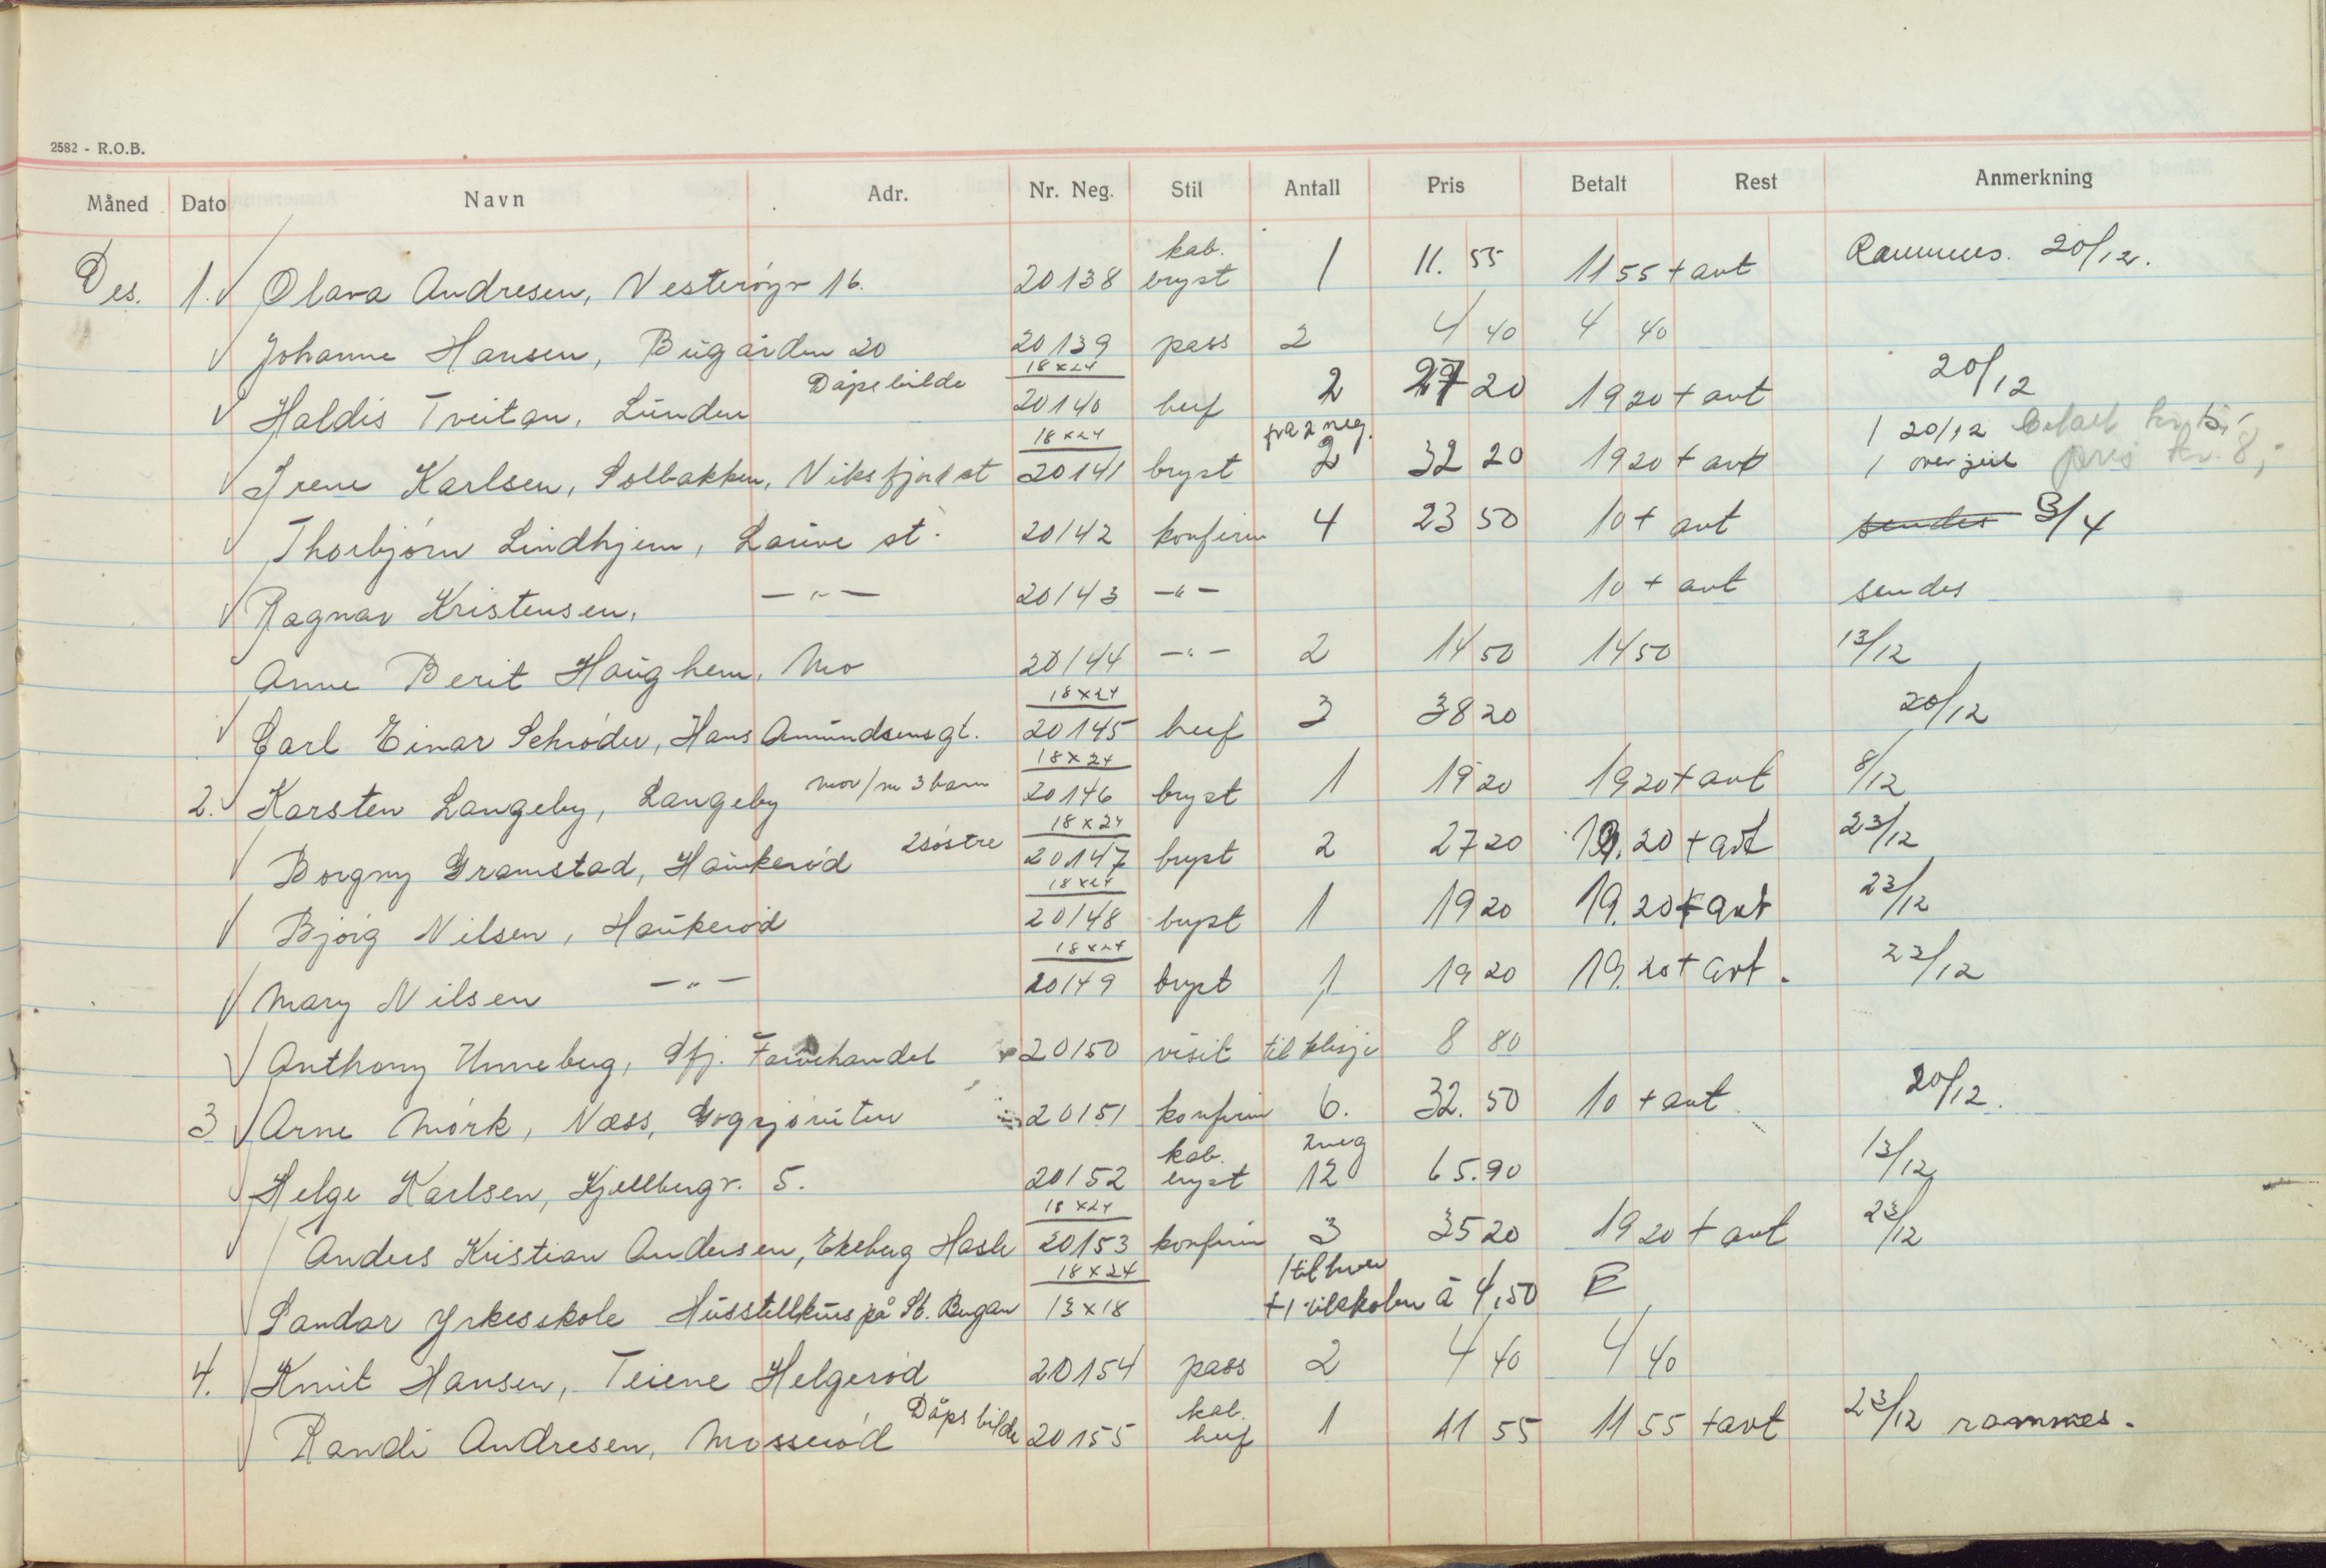 2582 - R.O.B.
Måned Dato Navn Adr. Nr. Neg. Stil Antall Pris Betalt Rest Anmerkning
Des. 1. Olava Andresen, Vesterøyv 16. 20138 kab. bryst 1 11.55 11 55 + avt Rammes. 20/12.
Johanne Hansen, Bugården 20 20139 pass 2 4 40 4 40
Haldis Tveitan, Lunden Dåpsbilde 18x24 20140 huf 2 27 20 19 20 + avt 20/12
Irene Karlsen, Solbakken, Viksfjord st 18x24 20141 bryst fra 2 neg. 2 32 20 19 20 + avt 1 20/12 betalt 1 over jul pris kr. 8,-
Thorbjørn Lindhjem, Lauve st. 20142 konfirm 4 23 50 10 + avt sendes 3/4
Ragnar Kristensen, -"- 20143 -"- 10 + avt sendes
Anne Berit Haughem, Mo 20144 -"- 2 14 50 14 50 13/12
Carl Einar Schrøder, Hans Amundsensgt. 18x24 20145 huf 3 38 20 20/12
2. Karsten Langeby, Langeby mor/m 3 barn 18x24 20146 bryst 1 19 20 19 20 + avt 8/12
Borgny Gramstad, Haukerød 2 søstre 18x24 20147 bryst 2 27 20 19.20 + avt 23/12
Bjørg Nilsen, Haukerød 18x24 20148 bryst 1 19 20 19.20 + avt 23/12
Mary Nilsen -"- 18x24 20149 bryst 1 19 20 19.20 + avt. 23/12
Anthony Unneberg, Sfj. Farvehandel 20150 visit til klisje 8 80
3 Arne Mørk, Næss, 20151 konfirm 6. 32.50 10 + avt 20/12.
Helge Karlsen, Kjellbergv. 5. 20152 kab. bryst 2 neg 12 65.90 13/12
Anders Kristian Andersen, Ekeberg Hasle 18x24 20153 konfirm 3 35 20 19 20 + avt 23/12
Sandar Yrkesskole Husstellkurs på St. Bugan 18x24 13x18 1 til hver +1 til skolen à 4,50 E
4. Knut Hansen, Teiene Helgerød 20154 pass 2 4 40 4 40
Randi Andresen, Mosserød Dåpsbilde 20155 kab. huf 1 11 55 11 55 + avt 23/12 rammes.